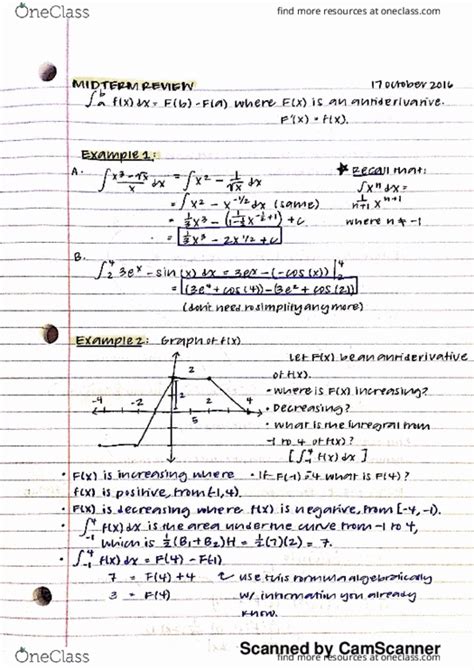 OneClass
find more resources at oneclass.com
MIDTERM REVIEW 17 October 2016
∫ₐᵇ f(x) dx = F(b) - F(a) where F(x) is an antiderivative.
F'(x) = f(x).
Example 1:
A. ∫ (x³ - √x)/x dx = ∫x² - 1/√x dx
= ∫x² - x^(-1/2) dx (same)
= 1/3 x³ - (1/(1-1/2) x^(-1/2+1)) + C
= 1/3 x³ - 2x^(1/2) + C
★ Recall that:
∫xⁿ dx =
1/(n+1) x^(n+1)
where n ≠ -1
B.
∫₂⁴ 3eˣ - sin(x) dx = 3eˣ - (-cos(x))|₂⁴
= (3e⁴ + cos(4)) - (3e² + cos(2))
(don't need to simplify any more)
Example 2: Graph of f(x)
-4 -2 2 2 2 4
5
Let F(x) be an antiderivative
of f(x).
• Where is F(x) increasing?
• Decreasing?
• What is the integral from
-1 to 4 of f(x)?
[∫₋₁⁴ f(x) dx]
• If F(-1) = -4 what is F(4)?
• F(x) is increasing where
f(x) is positive, from (-1, 4).
• F(x) is decreasing where f(x) is negative, from [-4, -1).
• ∫₋₁⁴ f(x) dx is the area under the curve from -1 to 4,
which is 1/2 (B₁ + B₂)H = 1/2 (7)(2) = 7.
• ∫₋₁⁴ f(x) dx = F(4) - F(-1)
7 = F(4) + 4 use this formula algebraically
3 = F(4) w/ information you already
know.
Scanned by CamScanner
OneClass
find more resources at oneclass.com